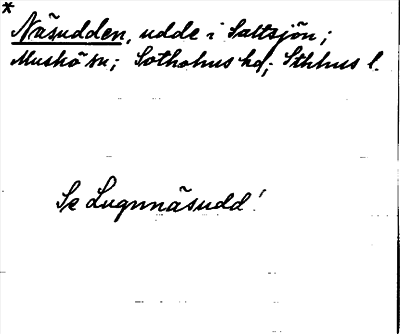 *
Näsudden, udde i Saltsjön;
Muskö sn; Sotholms hd; Sthlms l.
Se Lugnnäsudd!